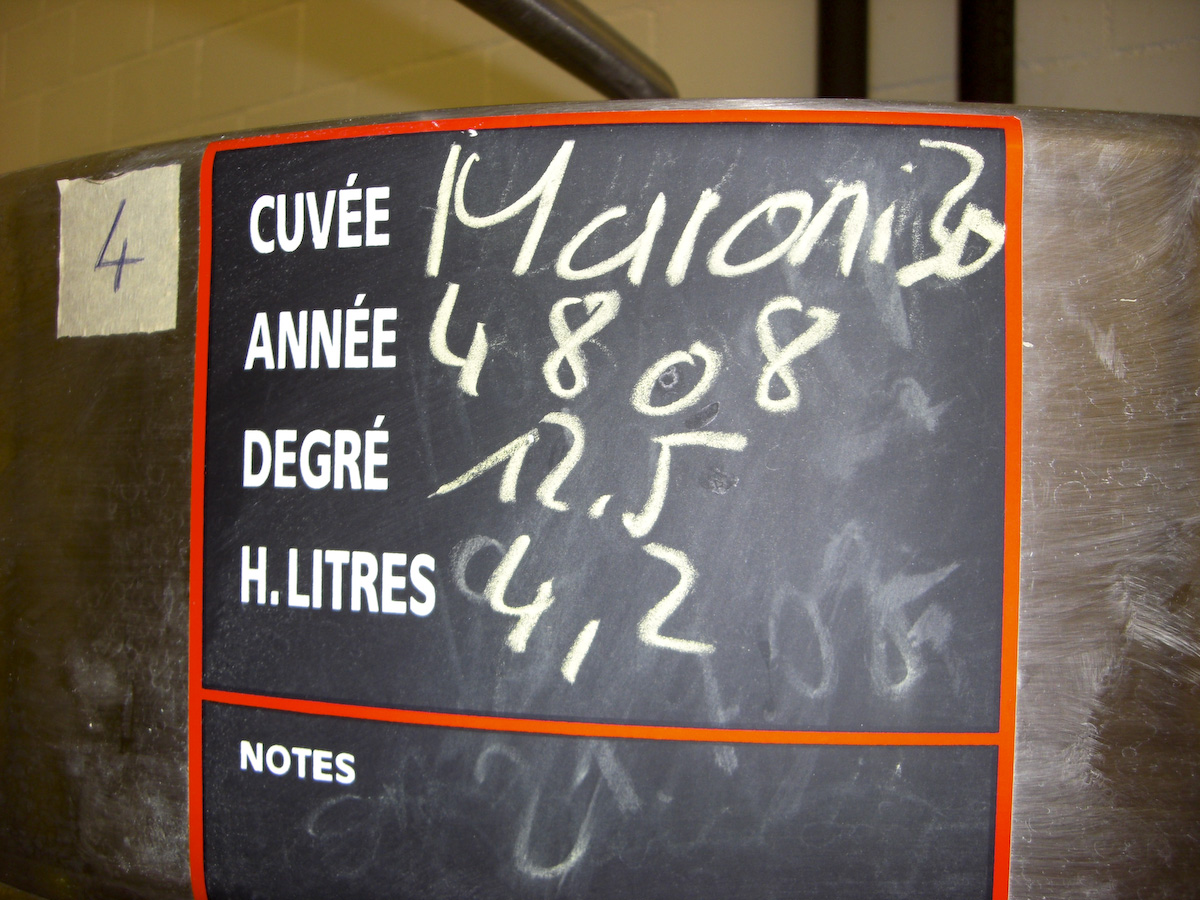 4
CUVÉE
ANNÉE 48 08
DEGRÉ 12.5
H. LITRES 4,2
NOTES